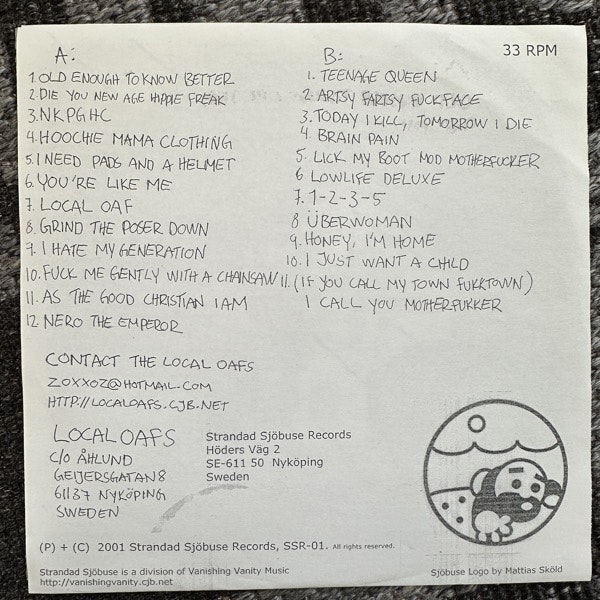 33 RPM
A:
1. OLD ENOUGH TO KNOW BETTER
2. DIE YOU NEW AGE HIPPIE FREAK
3. NKPGHC
4. HOOCHIE MAMA CLOTHING
5. I NEED PADS AND A HELMET
6. YOU'RE LIKE ME
7. LOCAL OAF
8. GRIND THE POSER DOWN
9. I HATE MY GENERATION
10. FUCK ME GENTLY WITH A CHAINSAW
11. AS THE GOOD CHRISTIAN I AM
12. NERO THE EMPEROR
B:
1. TEENAGE QUEEN
2. ARTSY FARTSY FUCKFACE
3. TODAY I KILL, TOMORROW I DIE
4. BRAIN PAIN
5. LICK MY BOOT MOD MOTHERFUCKER
6 LOWLIFE DELUXE
7. 1-2-3-5
8 ÜBERWOMAN
9. HONEY, I'M HOME
10. I JUST WANT A CHILD
11. (IF YOU CALL MY TOWN FUKKTOWN)
I CALL YOU MOTHERFUKKER
CONTACT THE LOCAL OAFS
ZOXXOZ@HOTMAIL.COM
HTTP://LOCALOAFS.CJB.NET
LOCAL OAFS
C/O ÅHLUND
GEIJERSGATAN 8
61137 NYKÖPING
SWEDEN
Strandad Sjöbuse Records
Höders Väg 2
SE-611 50 Nyköping
Sweden
(P) + (C) 2001 Strandad Sjöbuse Records, SSR-01. All rights reserved.
Strandad Sjöbuse is a division of Vanishing Vanity Music
http://vanishingvanity.cjb.net
Sjöbuse Logo by Mattias Sköld